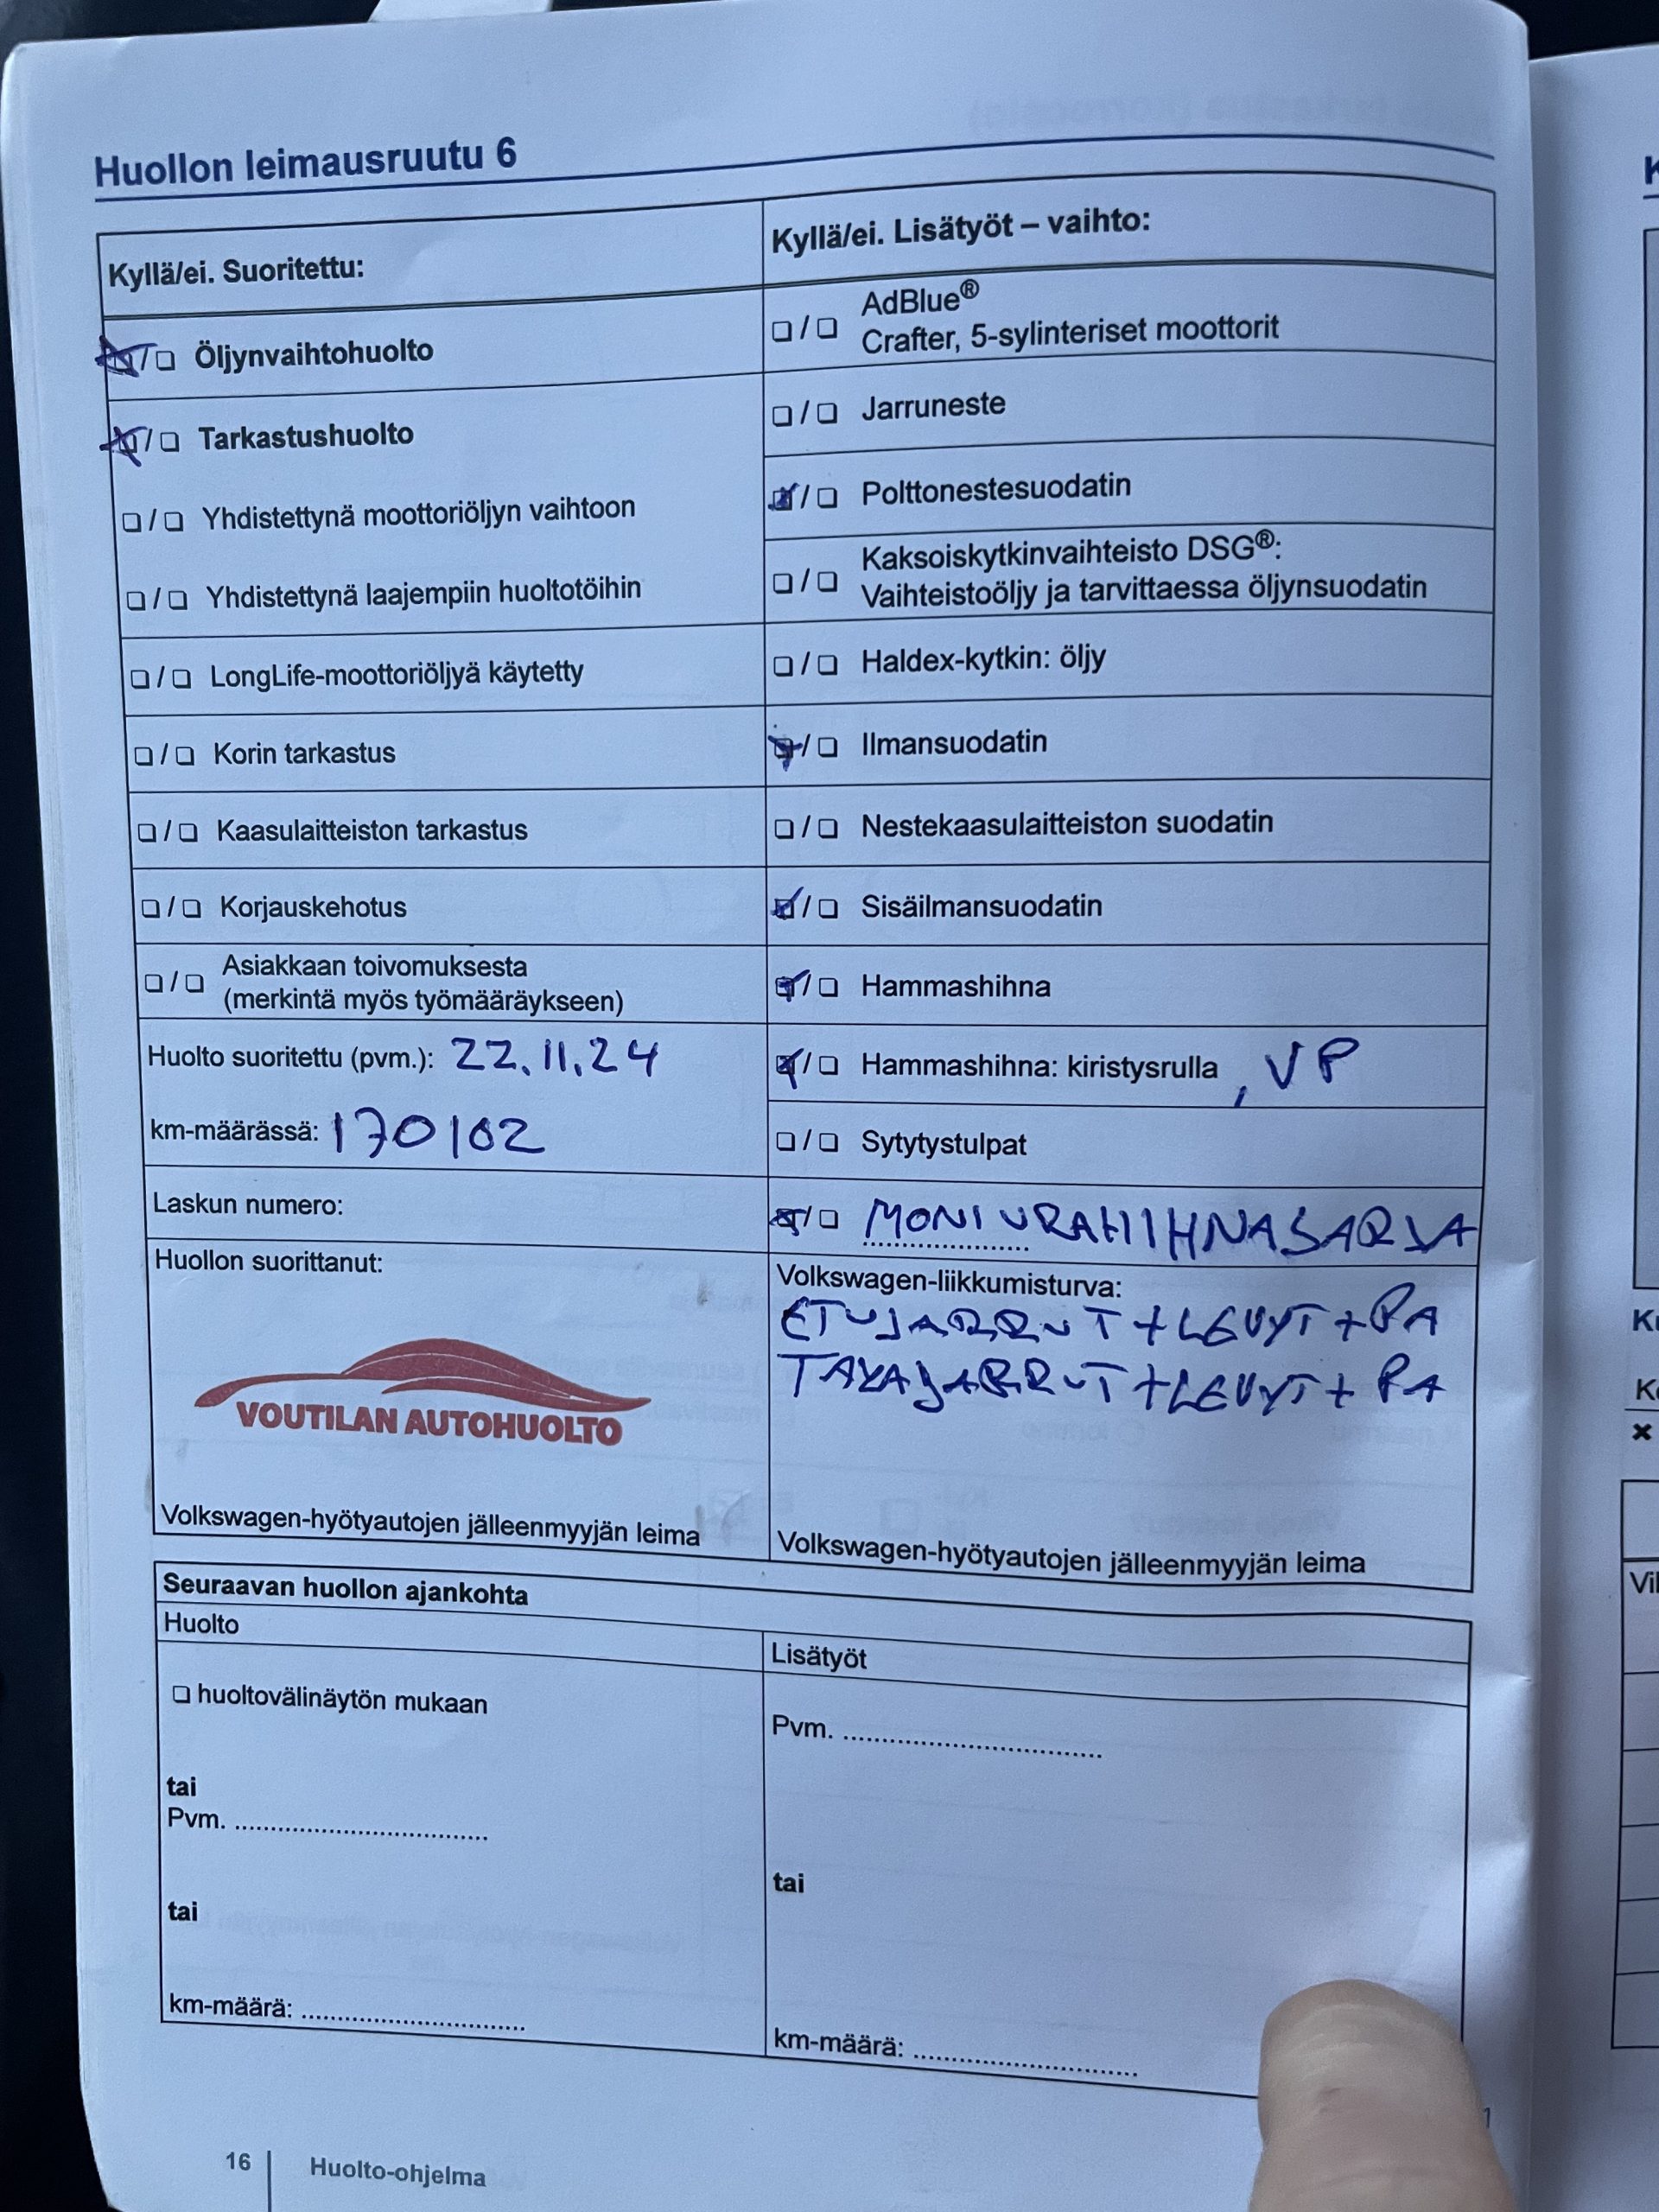 Huollon leimausruutu 6
Kyllä/ei. Suoritettu:
Öljynvaihtohuolto
Tarkastushuolto
Yhdistettynä moottoriöljyn vaihtoon
Yhdistettynä laajempiin huoltotöihin
LongLife-moottoriöljyä käytetty
Korin tarkastus
Kaasulaitteiston tarkastus
Korjauskehotus
Asiakkaan toivomuksesta
(merkintä myös työmääräykseen)
Huolto suoritettu (pvm.): 22.11.24
km-määrässä: 170102
Laskun numero:
Huollon suorittanut:
VOUTILAN AUTOHUOLTO
Volkswagen-hyötyautojen jälleenmyyjän leima
Kyllä/ei. Lisätyöt – vaihto:
AdBlue®
Crafter, 5-sylinteriset moottorit
Jarruneste
Polttonestesuodatin
Kaksoiskytkinvaihteisto DSG®:
Vaihteistoöljy ja tarvittaessa öljynsuodatin
Haldex-kytkin: öljy
Ilmansuodatin
Nestekaasulaitteiston suodatin
Sisäilmansuodatin
Hammashihna
Hammashihna: kiristysrulla , VP
Sytytystulpat
MONIURAHIHNASARJA
Volkswagen-liikkumisturva:
ETUJARRUT + LEVYT + PA
TAKAJARRUT + LEVYT + PA
Volkswagen-hyötyautojen jälleenmyyjän leima
Seuraavan huollon ajankohta
Huolto
huoltovälinäytön mukaan
tai
Pvm.
tai
km-määrä:
Lisätyöt
Pvm.
tai
km-määrä:
16 | Huolto-ohjelma